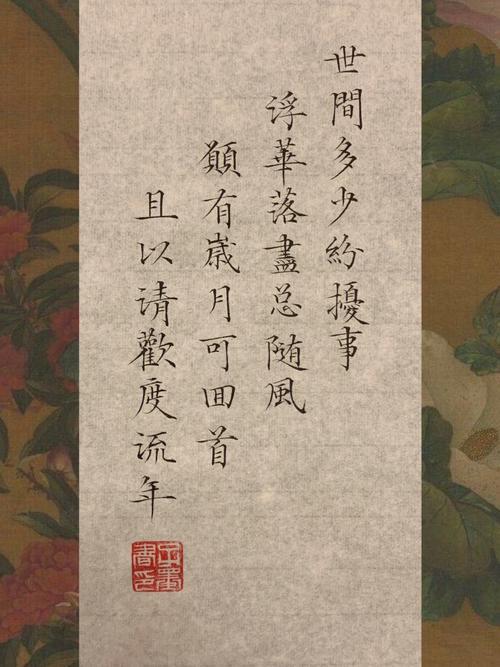 世間多少紛擾事
浮華落盡总随風
願有嵗月可囬首
且以清歡度流年